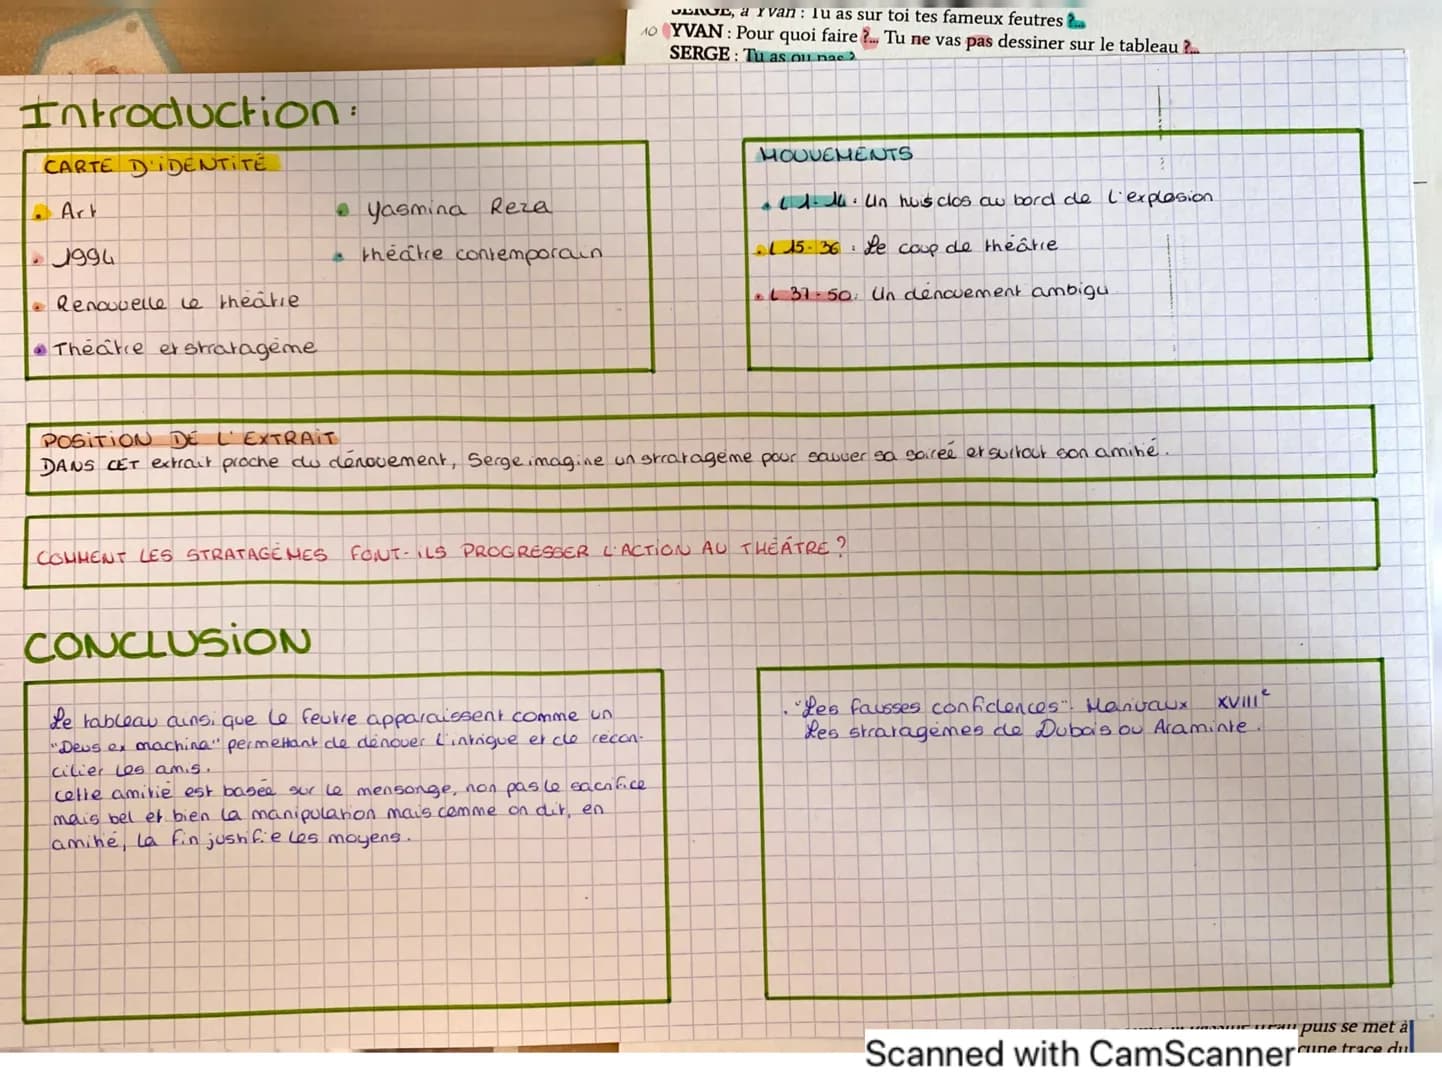 SERGE, à Yvan : Tu as sur toi tes fameux feutres ?...
10 YVAN : Pour quoi faire ?... Tu ne vas pas dessiner sur le tableau ?...
SERGE : Tu as ou pas ?
Introduction :
CARTE D'IDENTITÉ
Art
Yasmina Reza
1994
théâtre contemporain
Renouvelle le théâtre
Théâtre et stratagème
MOUVEMENTS
L 1-14 : Un huis clos au bord de l'explosion
L 15-36 : Le coup de théâtre
L 37-50 : Un dénouement ambigu
POSITION DE L'EXTRAIT
DANS CET extrait proche du dénouement, Serge imagine un stratagème pour sauver sa soirée et surtout son amitié.
COMMENT LES STRATAGÈMES FONT-ILS PROGRESSER L'ACTION AU THÉÂTRE ?
CONCLUSION
Le tableau ainsi que le feutre apparaissent comme un
"Deus ex machina" permettant de dénouer l'intrigue et de récon-
cilier les amis.
cette amitié est basée sur le mensonge, non pas le sacrifice
mais bel et bien la manipulation mais comme on dit, en
amitié, la fin justifie les moyens.
"Les fausses confidences". Marivaux XVIIIe
Les stratagèmes de Dubois ou Araminte.
puis se met à
cune trace du
Scanned with CamScanner